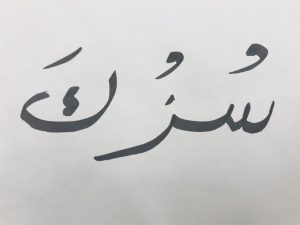 سُرُكَ